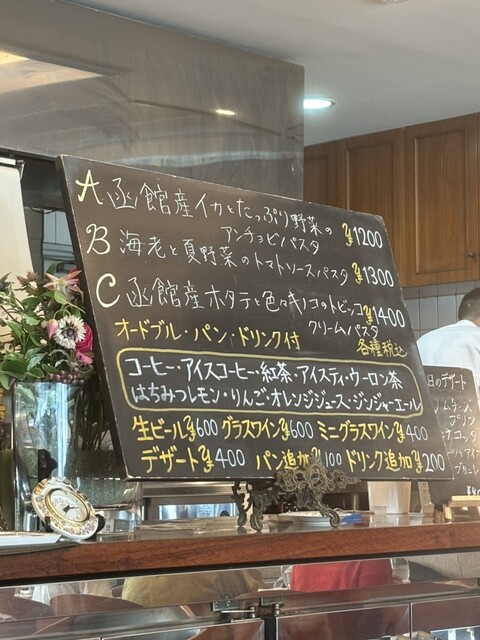 A 函館産イカとたっぷり野菜の
アンチョビパスタ ¥1200
B 海老と夏野菜のトマトソースパスタ ¥1300
C 函館産ホタテと色々キノコのトビッコ
クリームパスタ ¥1400
オードブル・パン・ドリンク付 各種税込
コーヒー・アイスコーヒー・紅茶・アイスティ・ウーロン茶
はちみつレモン・りんご・オレンジジュース・ジンジャーエール
生ビール¥600 グラスワイン¥600 ミニグラスワイン¥400
デザート¥400 パン追加¥100 ドリンク追加¥200
日のデザート
プリン